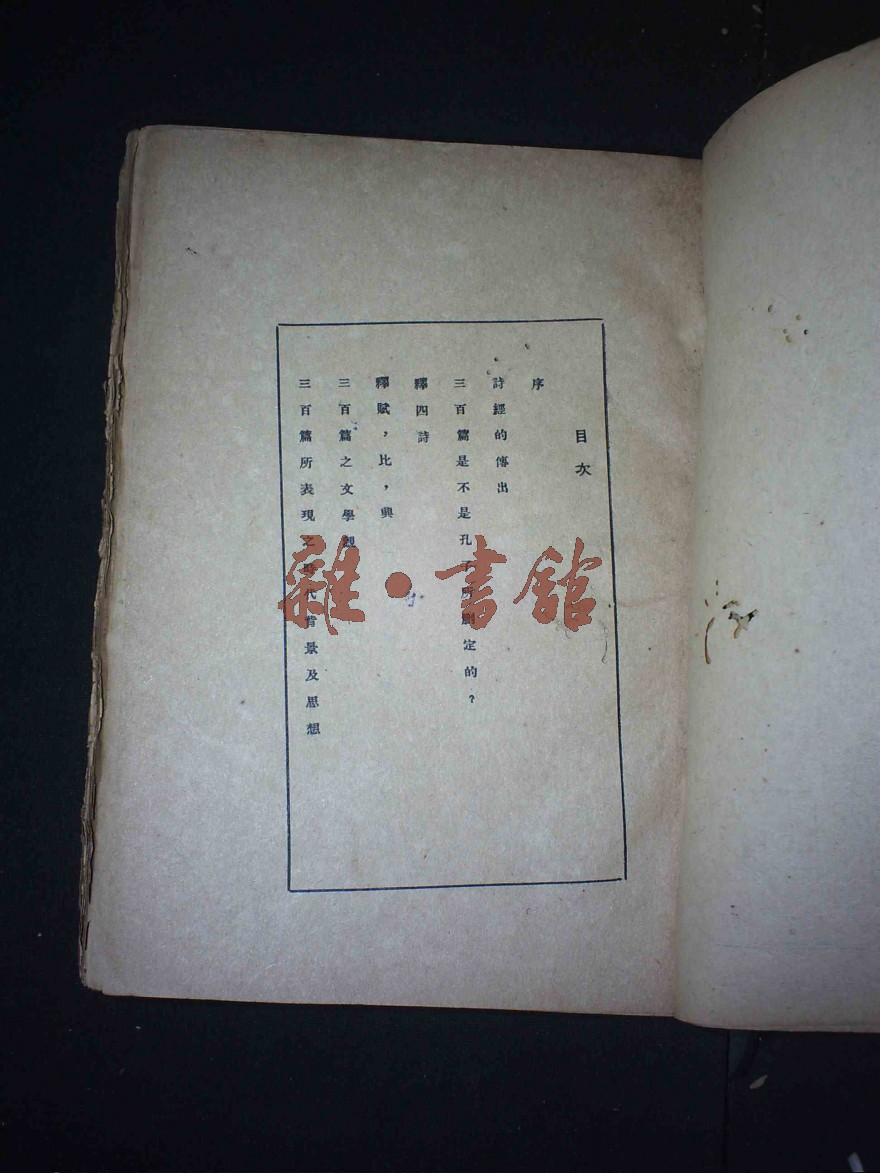 目次
序
詩經的傳出
三百篇是不是孔子所刪定的？
釋四詩
釋賦，比，興
三百篇之文學觀
三百篇所表現之時代背景及思想
雜·書館